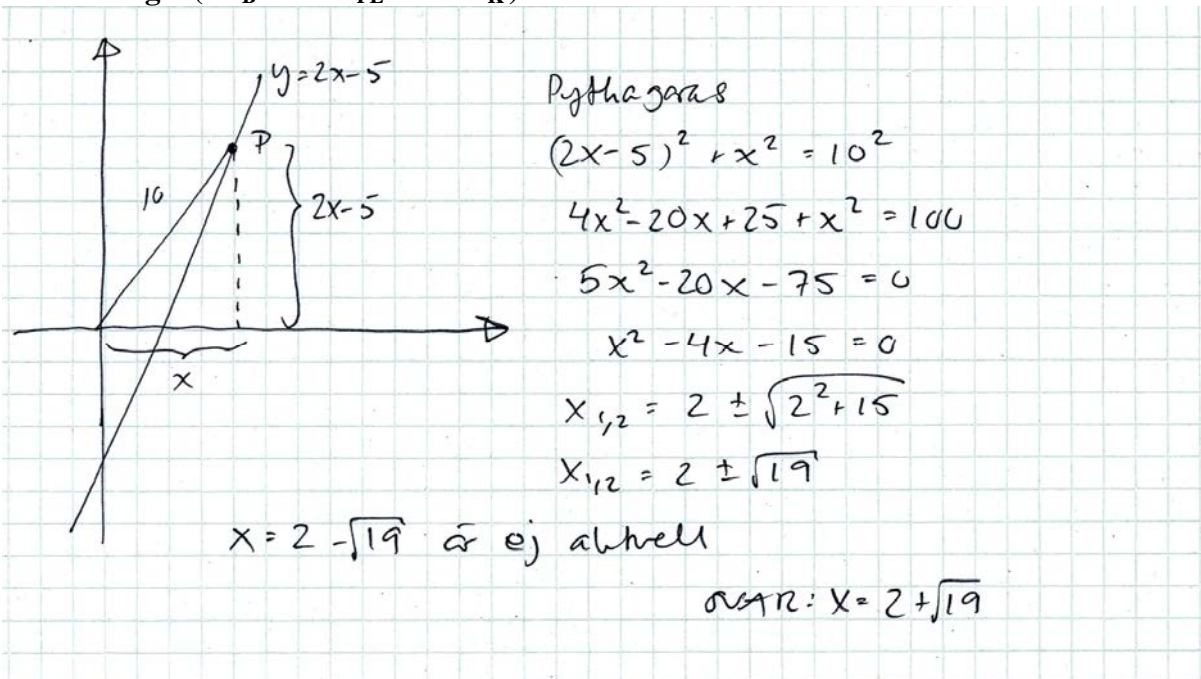 y=2x-5
P
10
2x-5
x
Pythagoras
(2x-5)² + x² = 10²
4x²-20x+25+x² = 100
5x²-20x-75 = 0
x² -4x -15 = 0
x₁,₂ = 2 ± √(2²+15)
x₁,₂ = 2 ± √19
x = 2 - √19 är ej aktuell
SVAR: x = 2+√19